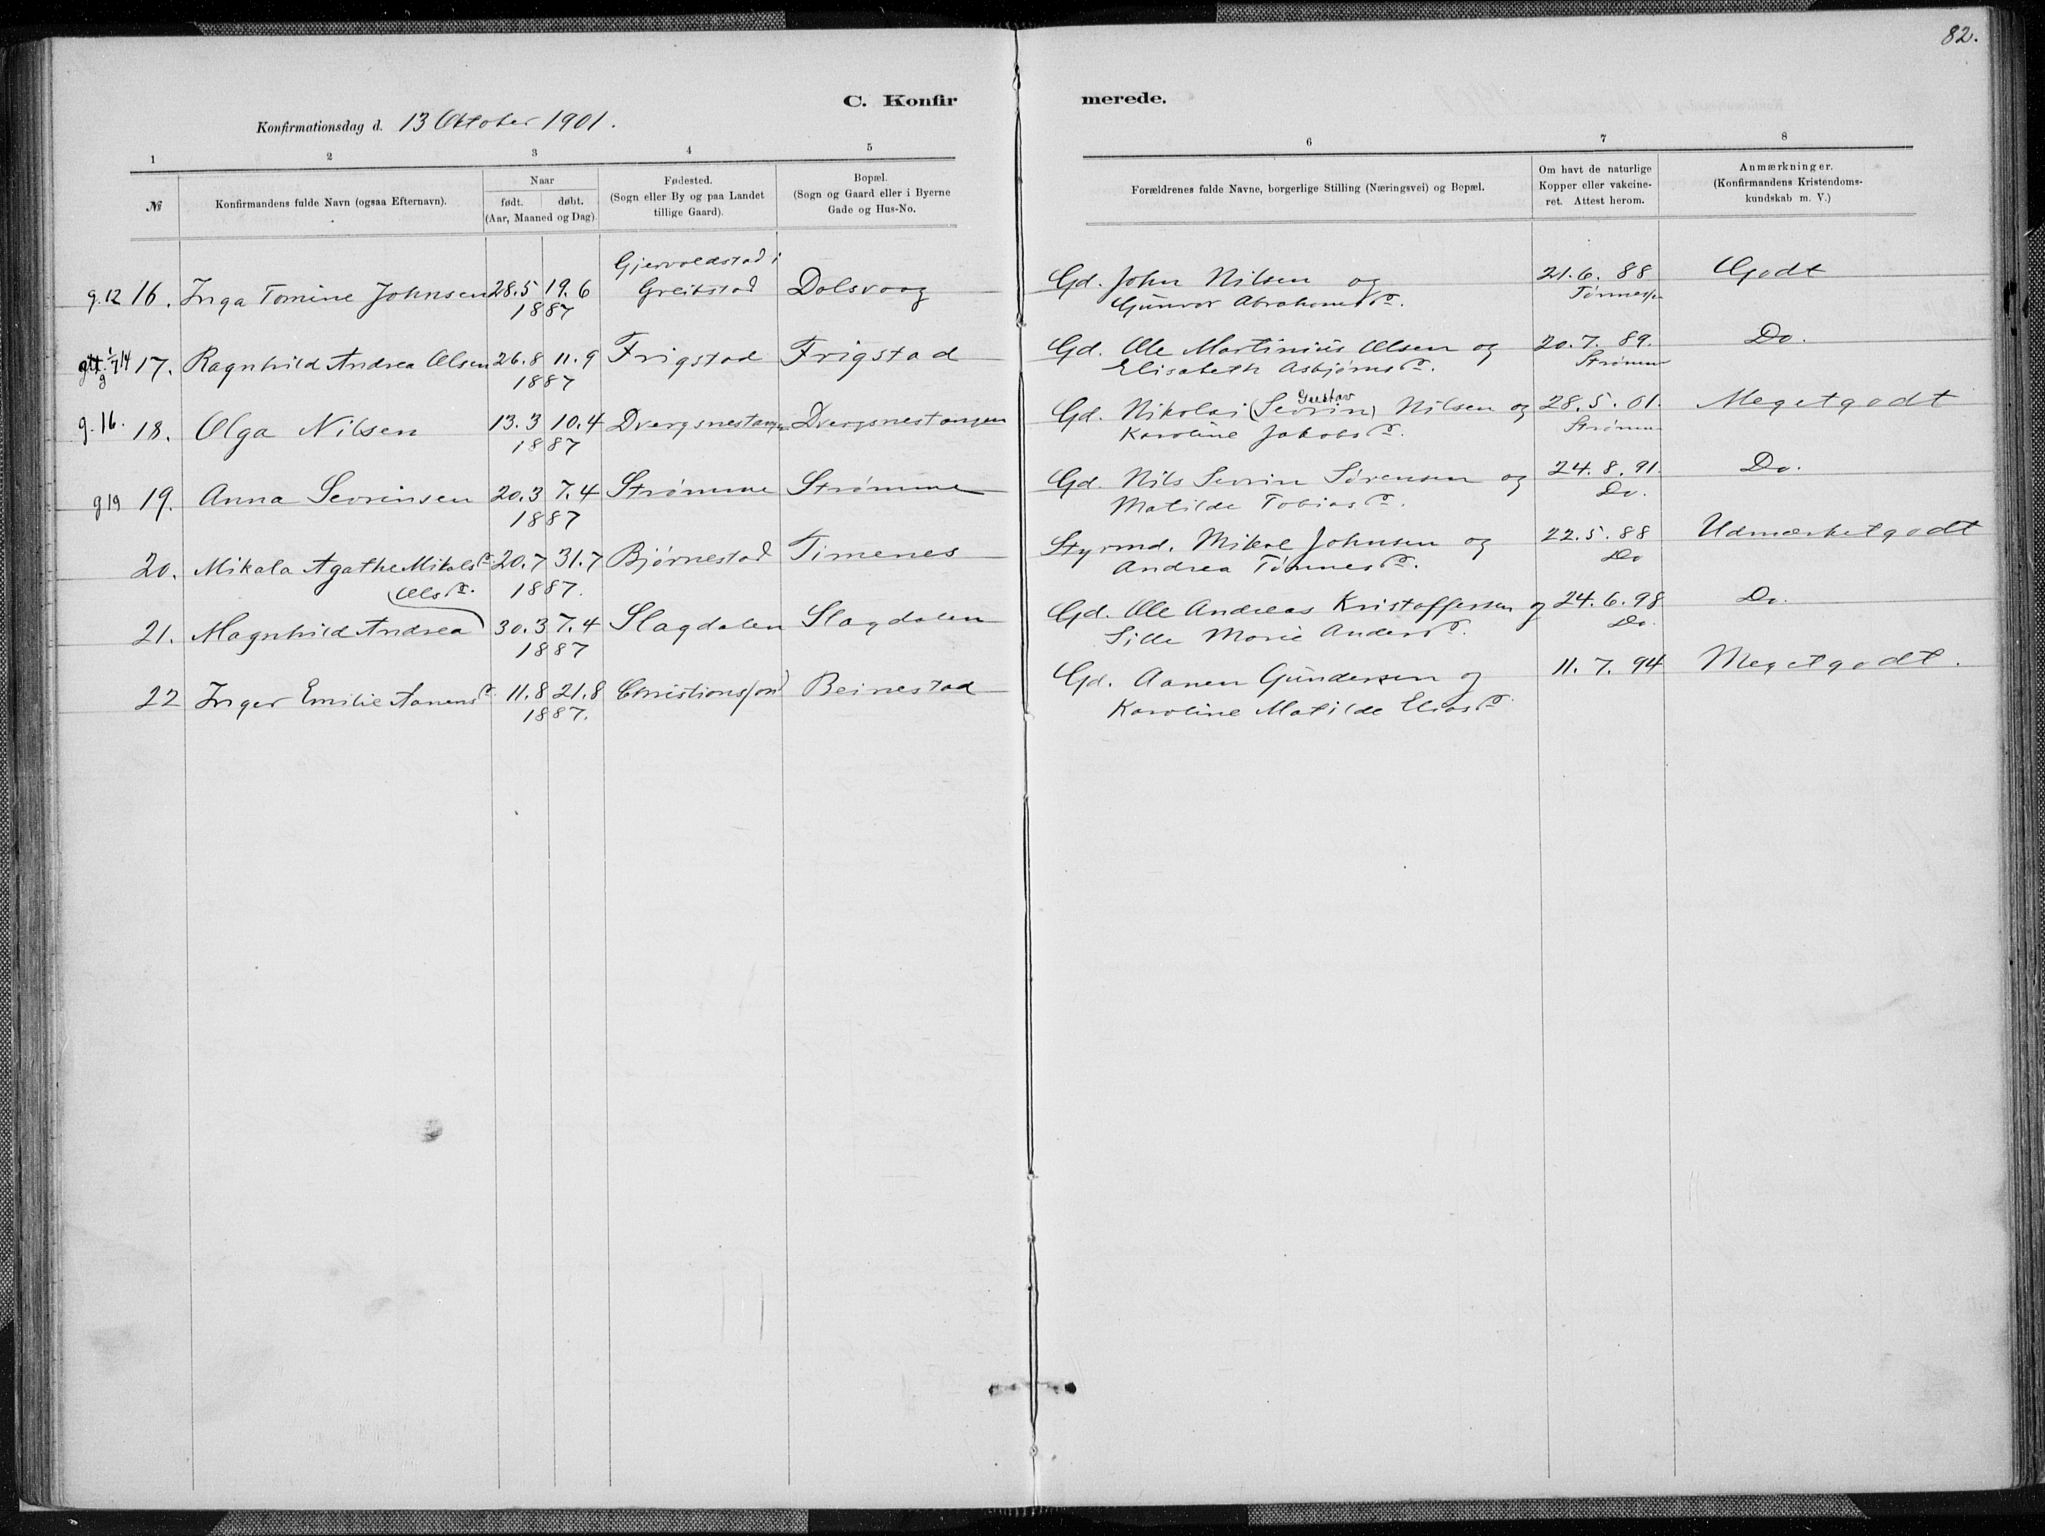 82.
C. Konfirmerede.
Konfirmationsdag d. 13 Oktober 1901.
1 2 3 4 5 6 7 8
№
Konfirmandens fulde Navn (ogsaa Efternavn).
Naar
født. døbt.
(Aar, Maaned og Dag).
Fødested.
(Sogn eller By og paa Landet
tillige Gaard).
Bopæl.
(Sogn og Gaard eller i Byerne
Gade og Hus-No.
Forældrenes fulde Navne, borgerlige Stilling (Næringsvei) og Bopæl.
Om havt de naturlige
Kopper eller vakcine-
ret. Attest herom.
Anmærkninger.
(Konfirmandens Kristendoms-
kundskab m. V.)
Gjervoldstad i
g.12 16. Inga Tomine Johnsen 28.5 19.6 Greibstad Dolsvaag Gd. John Nilsen og 21.6. 88 Godt
1887 Gunvor Abrahamsd.
17. Ragnhild Andrea Olsen 26.8 11.9 Frigstad Frigstad Gd. Ole Martinius Olsen og 20.7. 89. Do.
1887 Elisabeth Asbjørnsd. Strømme
Gustav
g.16. 18. Olga Nilsen 13.3 10.4 Dvergsnestangen Dvergsnestangen Gd. Nikolai (Sevrin) Nilsen og 28.5.01. Megetgodt
1887 Karoline Jakobsd. Strømme
g19 19. Anna Sevrinsen 20.3 7.4 Strømme Strømme Gd. Nils Sevrin Sørensen og 24.8.91. Do.
1887 Matilde Tobiasd. Do.
20. Mikala Agathe Mikalsd. 20.7 31.7 Bjørnestad Timenes Styrmd. Mikal Johnsen og 22.5.88 Udmærketgodt
1887. Andrea Tønnesd. Do
Olsd.
21. Magnhild Andrea 30.3 7.4 Slagdalen Slagdalen Gd. Ole Andreas Kristoffersen og 24.6.98 Do.
1887 Sille Marie Andersd. Do.
22 Inger Emilie Aanensd. 11.8 21.8 Christianssand Beinestad Gd. Aanen Gundersen og 11.7.94 Megetgodt.
1887. Karoline Matilde Eliasd.